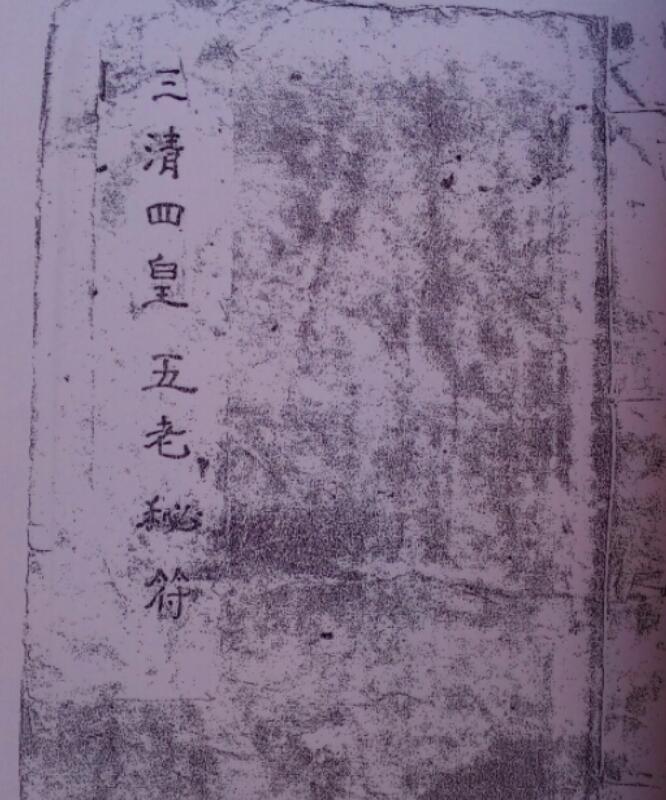 三清四皇五老秘符